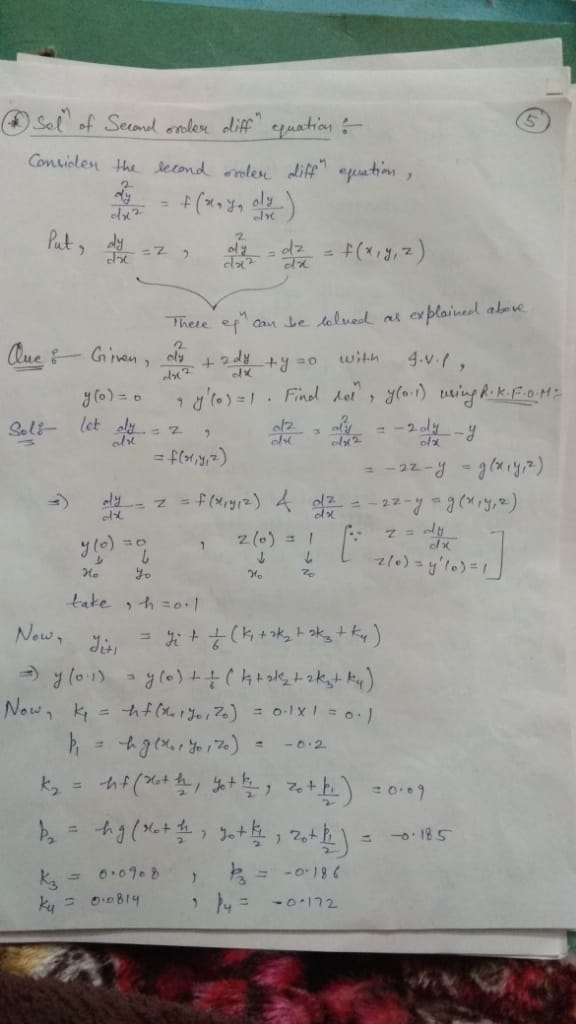 5
* Solⁿ of Second order diffⁿ equation :-
Consider the second order diffⁿ equation,
d²y/dx² = f(x, y, dy/dx)
Put, dy/dx = z, d²y/dx² = dz/dx = f(x, y, z)
These eqⁿ can be solved as explained above
Que :- Given, d²y/dx² + 2dy/dx + y = 0 with I.V.P,
y(0) = 0, y'(0) = 1. Find solⁿ, y(0.1) using R.K.F.O.M:-
Sol:- let dy/dx = z, dz/dx = d²y/dx² = -2dy/dx - y
= f(x,y,z) = -2z - y = g(x,y,z)
⇒ dy/dx = z = f(x,y,z) & dz/dx = -2z - y = g(x,y,z)
y(0) = 0, z(0) = 1 [∵ z = dy/dx
↓ ↓ ↓ ↓ z(0) = y'(0) = 1]
x₀ y₀ x₀ z₀
take, h = 0.1
Now, yᵢ₊₁ = yᵢ + 1/6 (k₁ + 2k₂ + 2k₃ + k₄)
⇒ y(0.1) = y(0) + 1/6 (k₁ + 2k₂ + 2k₃ + k₄)
Now, k₁ = hf(x₀, y₀, z₀) = 0.1 x 1 = 0.1
p₁ = hg(x₀, y₀, z₀) = -0.2
k₂ = hf(x₀ + h/2, y₀ + k₁/2, z₀ + p₁/2) = 0.09
p₂ = hg(x₀ + h/2, y₀ + k₁/2, z₀ + p₁/2) = -0.185
k₃ = 0.0908, p₃ = -0.186
k₄ = 0.0814, p₄ = -0.172